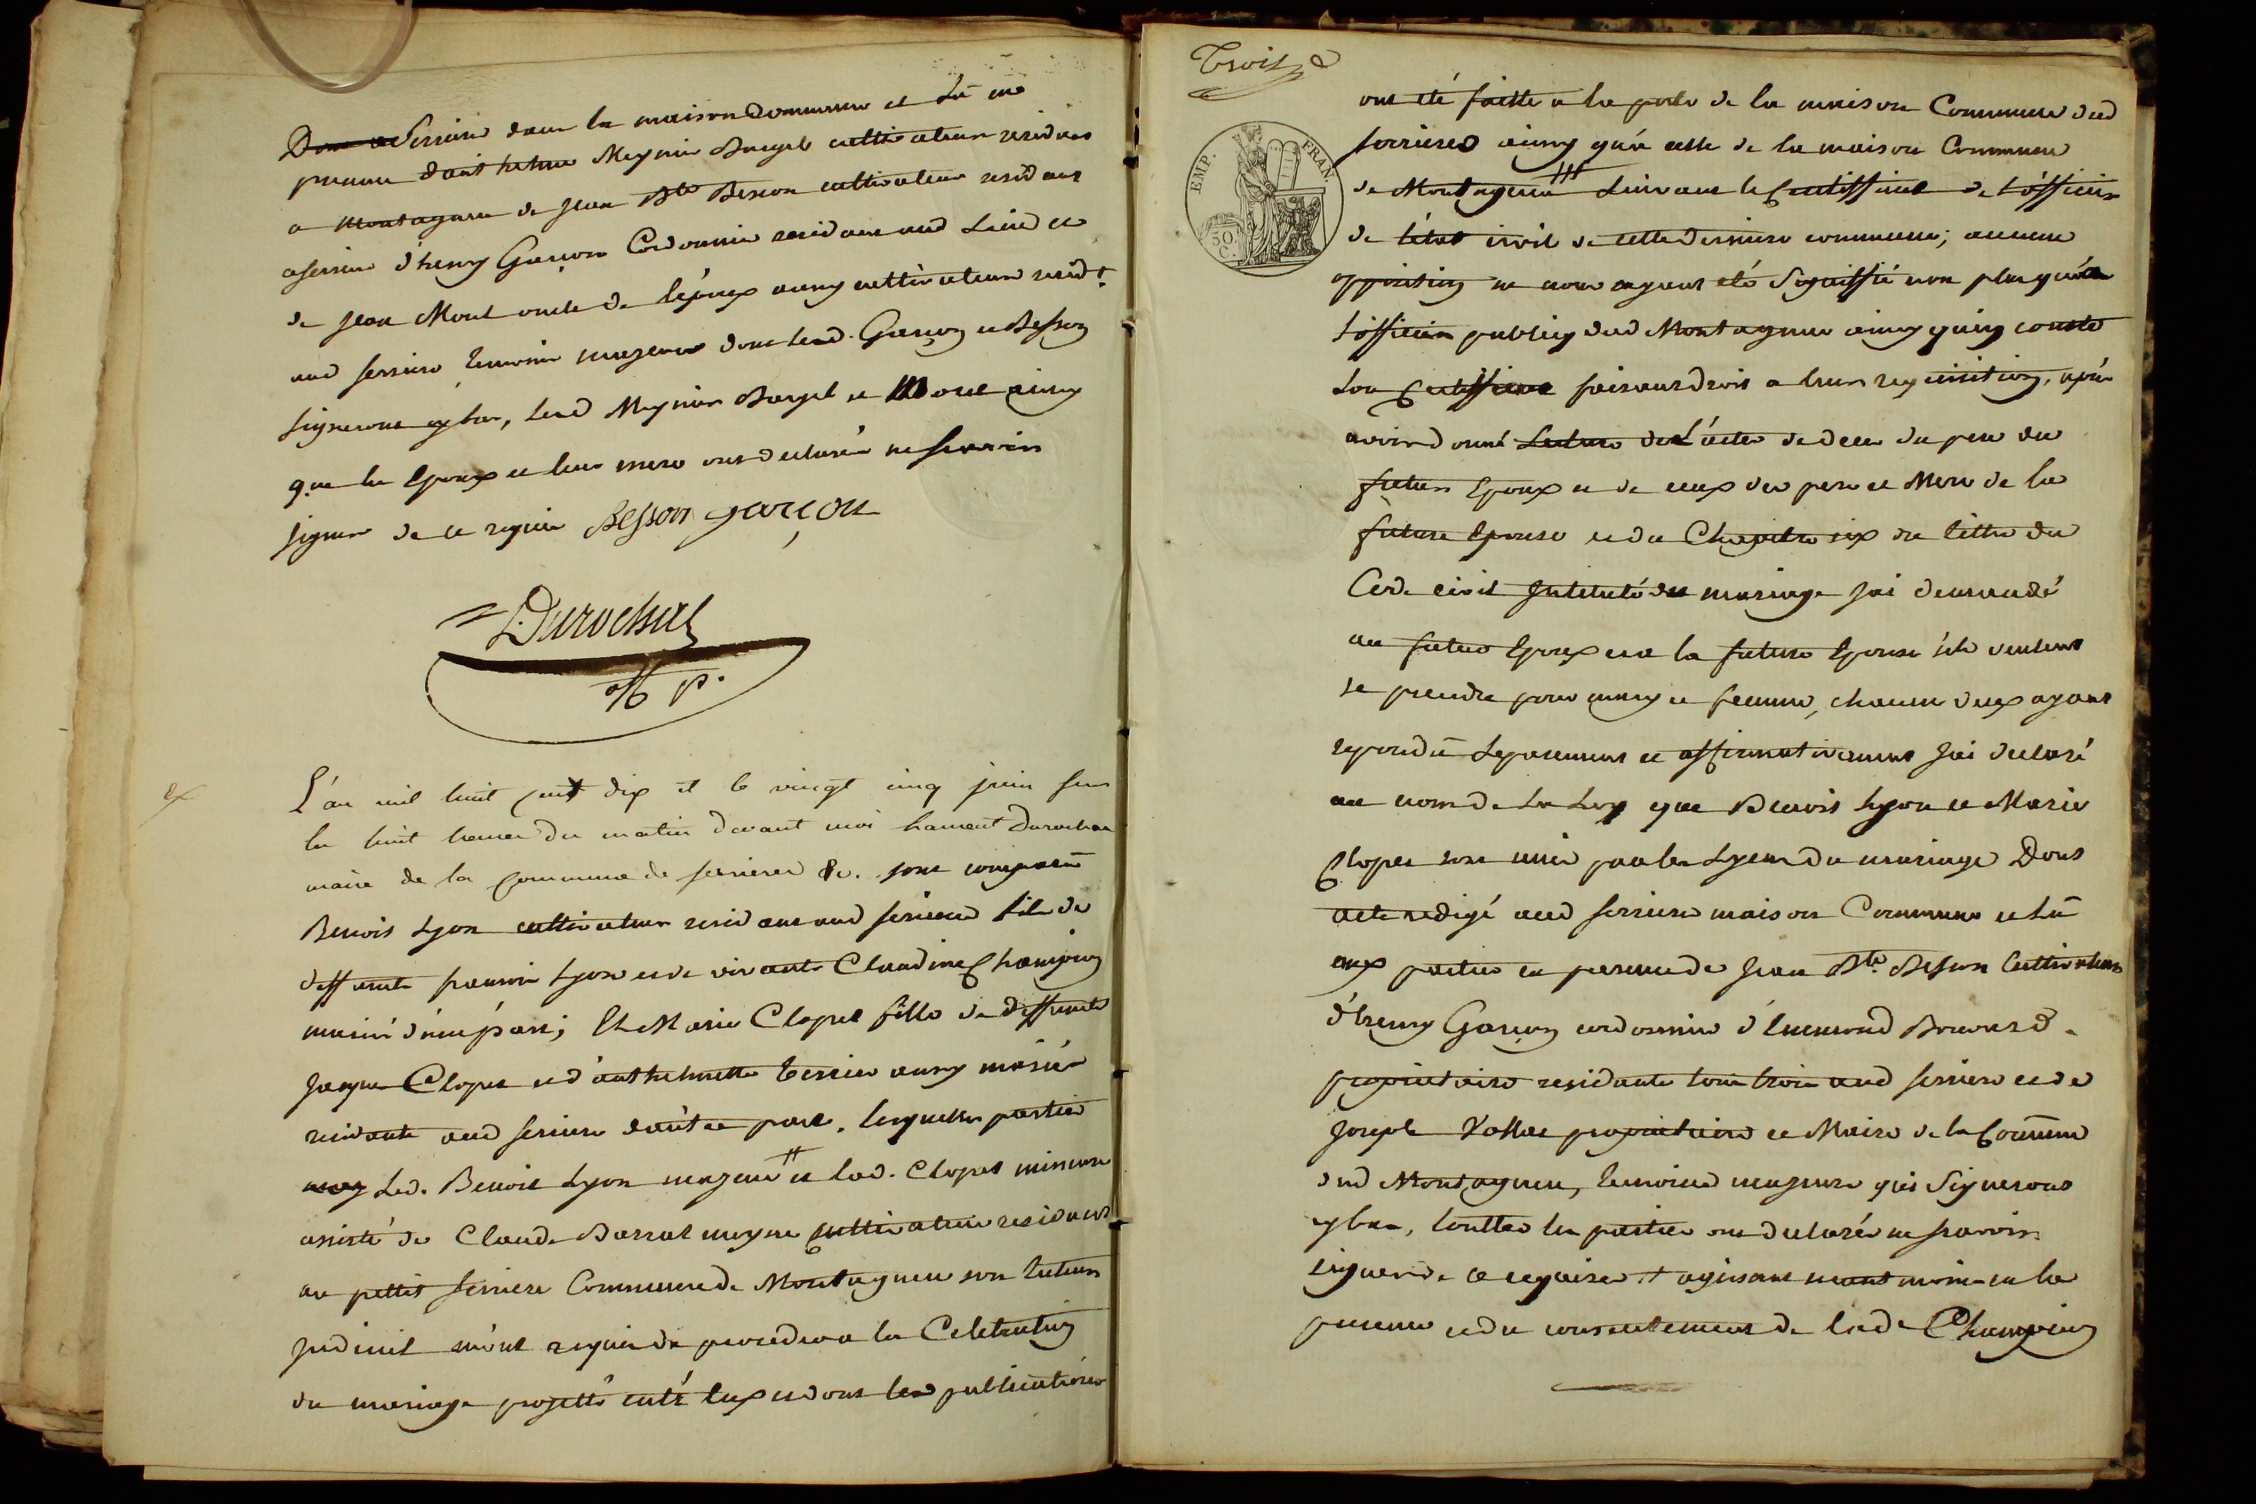 Dont a Serriere dans la maison Commune et Lû en
presence d'anthelme Meynier Burgel cultivateur residant
a Montagneu de Jean Bte Besson cultivateur residant
a Serriere d'henry Garçon Cordonnier residant aud Lieu et
de Jean Mont oncle de l'époux aussy cultivateur resid.t
aud serriere temoins majeurs dont led. Garçon et Besson
signeront cy bas, led Meynier Burgel et Mont ainsy
que les Epoux et leur mere ont declaré ne scavoir
signer de ce requis Besson garçon
Durochat
off p.
L'an mil huit cent dix et le vingt cinq juin sur
les huit heures du matin devant moi Durochat
maire de la Commune de serrieres &c. sont comparû
Benoit Lyon cultivateur residant aud serriere fils de
deffunt Lyon et de vivante Claudine Champion
mariés d'une part; Et Marie Clopet fille de deffunts
Jaques Clopet et d'anthelmette terrier aussy mariés
residante aud serriere d'autre part. lesquelles parties
Led. Benoit Lyon majeur # et lad. Clopet mineure
assisté de Claude Barral meyne Cultivateur residant
au pettit serriere Commune de Montagneu son tuteur
m'ont requis de proceder a la Celebration
du mariage projetté entr'eux et dont les publications
Trois
EMP. FRAN.
50 C.
ont été faitte a la porte de la maison Commune dud
serrieres ainsy qu'a celle de la maison Commune
de Montagneu # suivant le Certifficat de l'officier
de l'état civil de cette derniere commune; aucune
opposition ne nous ayant été Signiffié non plus qu'a
l'officier publiq dud Montagneu ainsy qu'en conste
son Certifficat faisant droit a leur requisition, après
avoir donné Lecture de L'acte de deces du pere du
futur Epoux et de ceux des pere et Mere de la
future Epouse et du Chapitre six du tittre du
Code civil Intitulé du mariage jai demandé
au futur Epoux et a la future Epouse s'ils veulent
se prendre pour mary et femme, chacun deux ayant
repondû separement et affirmativement jai declaré
au nom de La Loy que Benoit Lyon et Marie
Clopet sont unis par les Lyens du mariage Dont
acte redigé aud serriere maison Commune et Lû
aux parties en presence de Jean Bte. Besson Cultivateur
d'henry Garçon cordonnier d'Enemond
proprietaire residants tous trois aud serriere et de
joseph proprietaire et Maire de la Comune
dud Montagneu, temoins majeurs qui Signeront
cy bas, touttes les parties ont declaré ne scavoir
signer de ce requises. # agissant neantmoins en la
presence et du consentement de lad. Champion